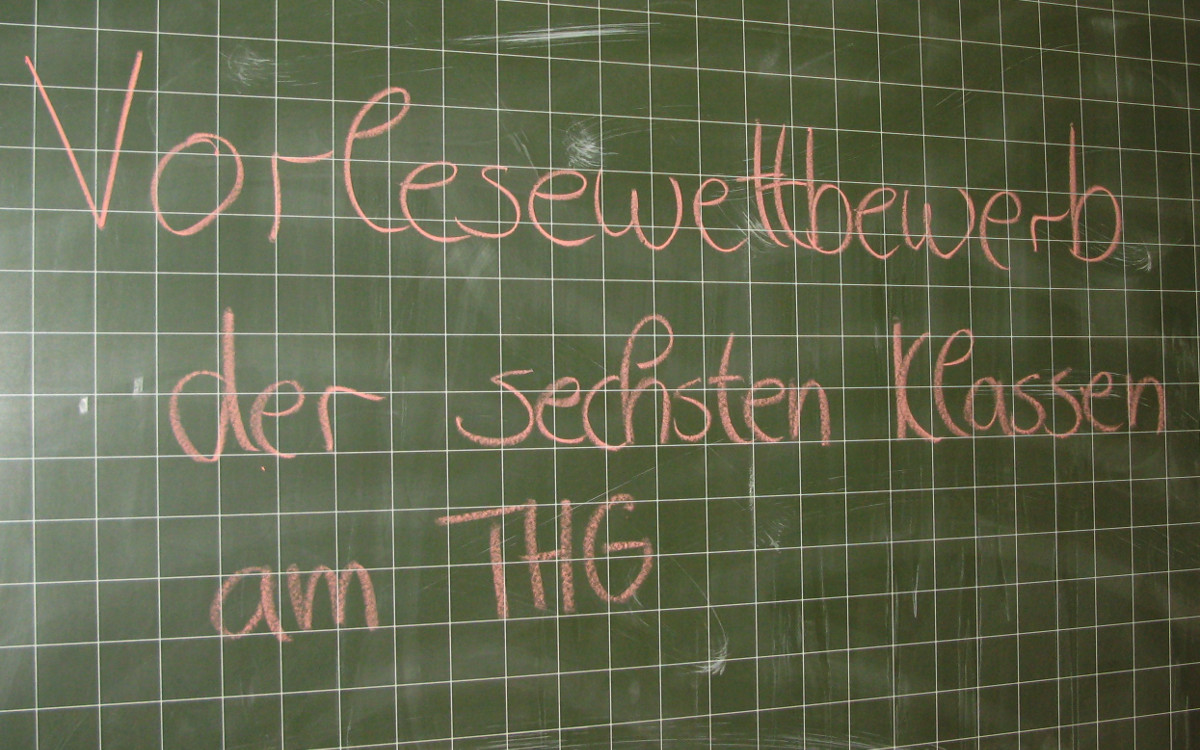 Vorlesewettbewerb
der sechsten Klassen
am THG